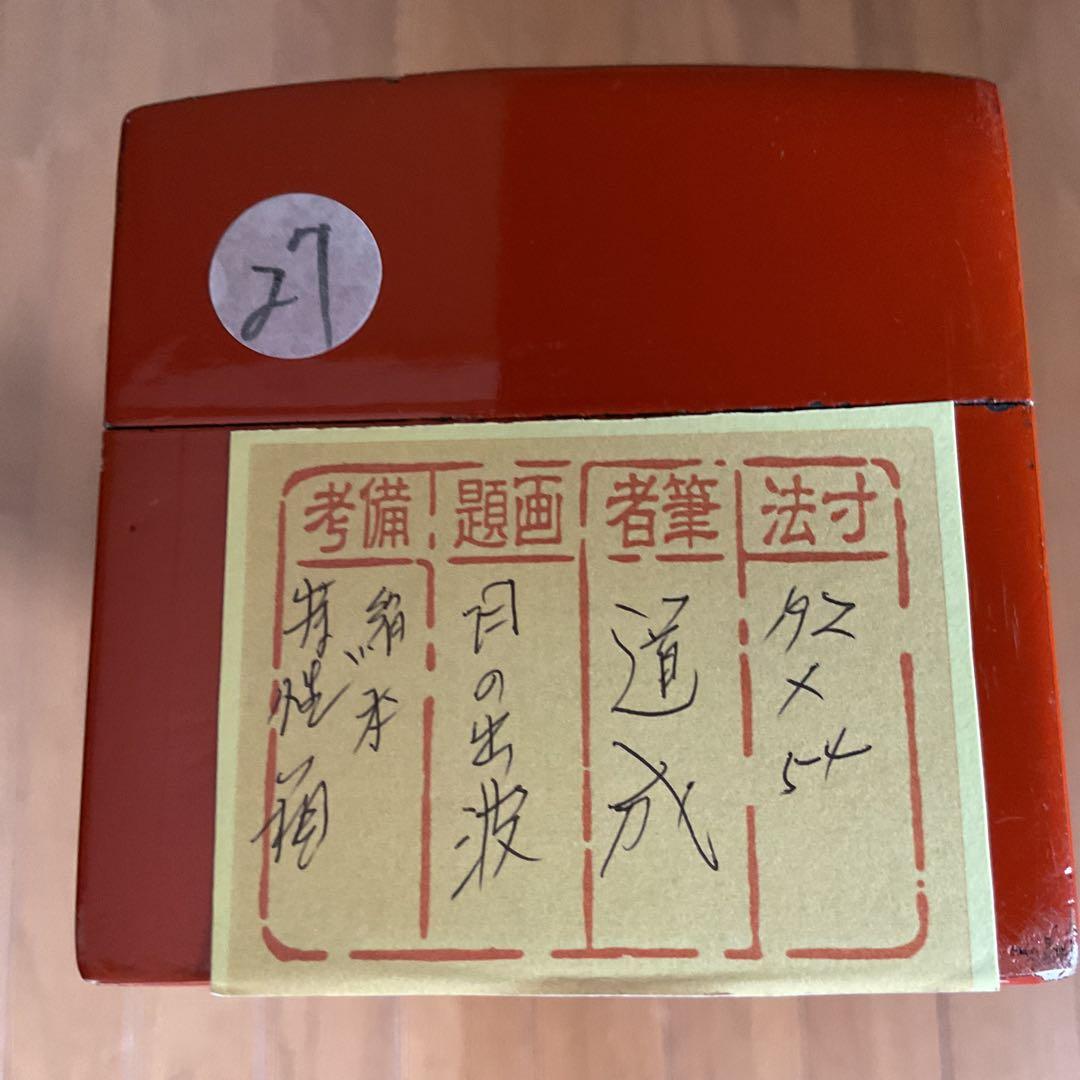 27
寸法
192
×
54
筆者
道成
画題
日の出波
備考
絹本
特性箱